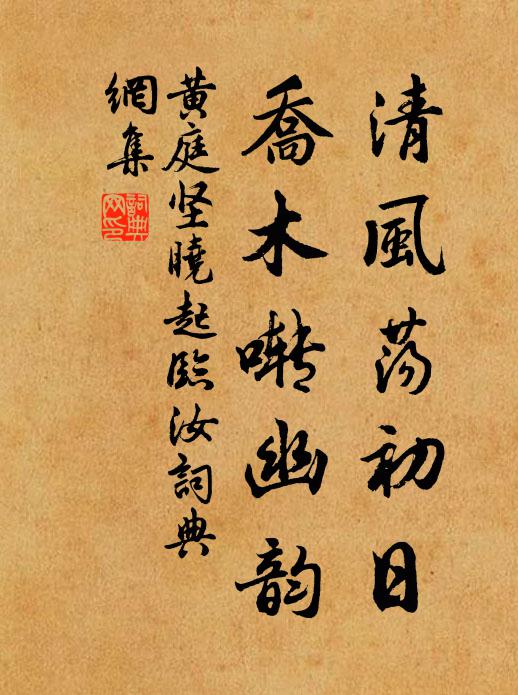 清風荡初日
喬木囀幽韵
黄庭坚曉起臨汝詞典
網集
詞典
网印